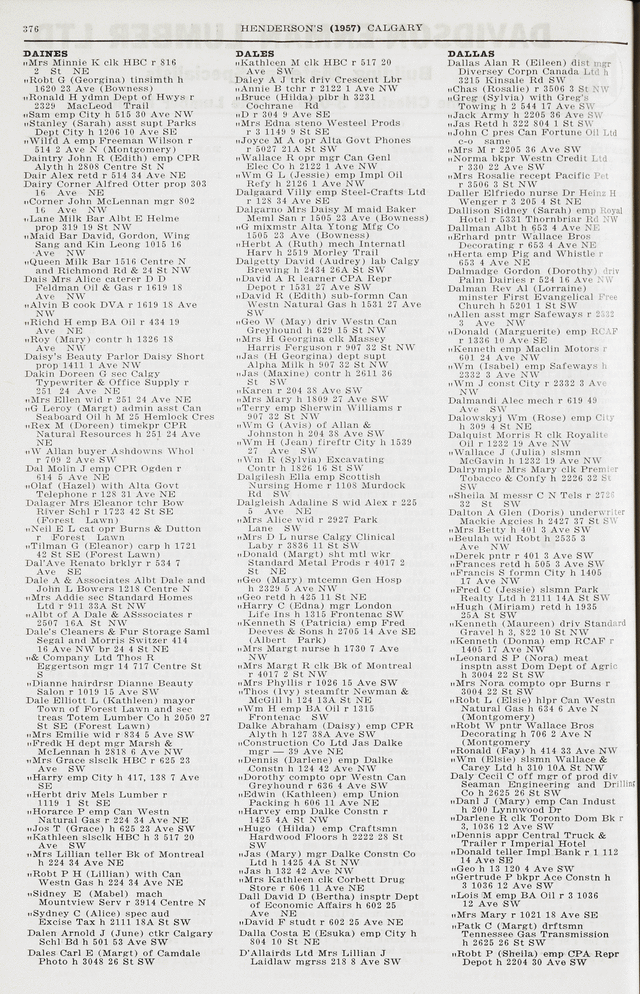 376
HENDERSON'S (1957) CALGARY
DAINES
„Mrs Minnie K clk HBC r 816
2 St NE
„Robt G (Georgina) tinsimth h
1620 23 Ave (Bowness)
„Ronald H ydmn Dept of Hwys r
2329 MacLeod Trail
„Sam emp City h 515 30 Ave NW
„Stanley (Sarah) asst supt Parks
Dept City h 1206 10 Ave SE
„Wilfd A emp Freeman Wilson r
514 2 Ave N (Montgomery)
Daintry John R (Edith) emp CPR
Alyth h 2808 Centre St N
Dair Alex retd r 514 34 Ave NE
Dairy Corner Alfred Otter prop 303
16 Ave NE
„Corner John McLennan mgr 802
16 Ave NW
„Lane Milk Bar Albt E Helme
prop 319 19 St NW
„Maid Bar David, Gordon, Wing
Sang and Kin Leong 1015 16
Ave NW
„Queen Milk Bar 1516 Centre N
and Richmond Rd & 24 St NW
Dais Mrs Alice caterer D D
Feldman Oil & Gas r 1619 18
Ave NW
„Alvin B cook DVA r 1619 18 Ave
NW
„Richd H emp BA Oil r 434 19
Ave NE
„Roy (Mary) contr h 1326 18
Ave NW
Daisy's Beauty Parlor Daisy Short
prop 1411 1 Ave NW
Dakin Doreen G sec Calgy
Typewriter & Office Supply r
251 24 Ave NE
„Mrs Ellen wid r 251 24 Ave NE
„G Leroy (Margt) admin asst Can
Seaboard Oil h M 25 Hemlock Cres
„Rex M (Doreen) timekpr CPR
Natural Resources h 251 24 Ave
NE
„W Allan buyer Ashdowns Whol
r 709 2 Ave SW
Dal Molin J emp CPR Ogden r
614 5 Ave NE
„Olaf (Hazel) with Alta Govt
Telephone r 128 31 Ave NE
Dalager Mrs Eleanor tchr Bow
River Schl r 1723 42 St SE
(Forest Lawn)
„Neil E L cat opr Burns & Dutton
r Forest Lawn
„Tilman G (Eleanor) carp h 1721
42 St SE (Forest Lawn)
Dal'Ave Renato brklyr r 534 7
Ave SE
Dale A & Associates Albt Dale and
John L Bowers 1218 Centre N
„Mrs Addie sec Standard Homes
Ltd r 911 33A St NW
„Albt of A Dale & ASssociates r
2507 16A St NW
Dale's Cleaners & Fur Storage Saml
Segal and Morris Switzer 414
16 Ave NW br 24 4 St NE
„& Company Ltd Thos R
Eggertson mgr 14 717 Centre St
S
„Dianne hairdrsr Dianne Beauty
Salon r 1019 15 Ave SW
Dale Elliott L (Kathleen) mayor
Town of Forest Lawn and sec
treas Totem Lumber Co h 2050 27
St SE (Forest Lawn)
„Mrs Emilie wid r 834 5 Ave SW
„Fredk H dept mgr Marsh &
McLennan h 2818 6 Ave NW
„Mrs Grace slsclk HBC r 625 23
Ave SW
„Harry emp City h 417, 138 7 Ave
SE
„Herbt driv Mels Lumber r
1119 1 St SE
„Horace P emp Can Westn
Natural Gas r 224 34 Ave NE
„Jos T (Grace) h 625 23 Ave SW
„Kathleen slsclk HBC h 3 517 20
Ave SW
„Mrs Lillian teller Bk of Montreal
h 224 34 Ave NE
„Robt P H (Lillian) with Can
Westn Gas h 224 34 Ave NE
„Sidney E (Mabel) mach
Mountview Serv r 3914 Centre N
„Sydney C (Alice) spec aud
Excise Tax h 2111 18A St SW
Dalen Arnold J (June) ctkr Calgary
Schl Bd h 501 53 Ave SW
Dales Carl E (Margt) of Camdale
Photo h 3048 26 St SW
DALES
„Kathleen M clk HBC r 517 20
Ave SW
Daley A J trk driv Crescent Lbr
„Annie B tchr r 2122 1 Ave NW
„Bruce (Hilda) plbr h 3231
Cochrane Rd
„D r 304 9 Ave SE
„Mrs Edna steno Westeel Prods
r 3 1149 9 St SE
„Joyce M A opr Alta Govt Phones
r 5027 21A St SW
„Wallace R opr mgr Can Genl
Elec Co h 2122 1 Ave NW
„Wm G L (Jessie) emp Impl Oil
Refy h 2126 1 Ave NW
Dalgaard Villy emp Steel-Crafts Ltd
r 128 34 Ave SE
Dalgarno Mrs Daisy M maid Baker
Meml San r 1505 23 Ave (Bowness)
„G mixmstr Alta Ytong Mfg Co
1505 23 Ave (Bowness)
„Herbt A (Ruth) mech Internatl
Harv h 2519 Morley Trail
Dalgetty David (Audrey) lab Calgy
Brewing h 2434 26A St SW
„David A R learner CPA Repr
Depot r 1531 27 Ave SW
„David R (Edith) sub-formn Can
Westn Natural Gas h 1531 27 Ave
SW
„Geo W (May) driv Westn Can
Greyhound h 629 15 St NW
„Mrs H Georgina clk Massey
Harris Ferguson r 907 32 St NW
„Jas (H Georgina) dept supt
Alpha Milk h 907 32 St NW
„Jas (Maxine) contr h 2611 36
St SW
„Karen r 204 38 Ave SW
„Mrs Mary h 1809 27 Ave SW
„Terry emp Sherwin Williams r
907 32 St NW
„Wm G (Avis) of Allan &
Johnston h 204 38 Ave SW
„Wm H (Jean) fireftr City h 1539
27 Ave SW
„Wm R (Sylvia) Excavating
Contr h 1826 16 St SW
Dalgilesh Ella emp Scottish
Nursing Home r 1108 Murdock
Rd SW
Dalgleish Adaline S wid Alex r 225
5 Ave NE
„Mrs Alice wid r 2927 Park
Lane SW
„Mrs D L nurse Calgy Clinical
Laby r 3836 11 St SW
„Donald (Margt) sht mtl wkr
Standard Metal Prods r 4017 2
St NE
„Geo (Mary) mtcemn Gen Hosp
h 2329 5 Ave NW
„Geo retd h 425 11 St NE
„Harry C (Edna) mgr London
Life Ins h 1315 Frontenac SW
„Kenneth S (Patricia) emp Fred
Deeves & Sons h 2705 14 Ave SE
(Albert Park)
„Mrs Margt nurse h 1730 7 Ave
NW
„Mrs Margt R clk Bk of Montreal
r 4017 2 St NE
„Mrs Phyllis r 1026 15 Ave SW
„Thos (Ivy) steamftr Newman &
McGill h 124 13A St NE
„Wm H emp BA Oil r 1315
Frontenac SW
Dalke Abraham (Daisy) emp CPR
Alyth h 127 38A Ave SW
„Construction Co Ltd Jas Dalke
mgr — 39 Ave NE
„Dennis (Darlene) emp Dalke
Constn h 124 42 Ave NW
„Dorothy compto opr Westn Can
Greyhound r 636 4 Ave SW
„Edwin (Kathleen) emp Union
Packing h 606 11 Ave NE
„Harvey emp Dalke Constn r
1425 4A St NW
„Hugo (Hilda) emp Craftsmn
Hardwood Floors h 2222 28 St
SW
„Jas (Mary) mgr Dalke Constn Co
Ltd h 1425 4A St NW
„Jas h 132 42 Ave NW
„Mrs Kathleen clk Corbett Drug
Store r 606 11 Ave NE
Dall David D (Bertha) insptr Dept
of Economic Affairs h 602 25
Ave NE
„David F studt r 602 25 Ave NE
Dalla Costa E (Esuka) emp City h
804 10 St NE
D'Allairds Ltd Mrs Lillian J
Laidlaw mgrss 218 8 Ave SW
DALLAS
Dallas Alan R (Eileen) dist mgr
Diversey Corpn Canada Ltd h
3215 Kinsale Rd SW
„Chas (Rosalie) r 3506 3 St NW
„Greg (Sylvia) with Greg's
Towing h 2 544 17 Ave SW
„Jack Army h 2205 36 Ave SW
„Jas Retd h 322 804 1 St SW
„John C pres Can Fortune Oil Ltd
c-o same
„Mrs M r 2205 36 Ave SW
„Norma bkpr Westn Credit Ltd
r 330 22 Ave SW
„Mrs Rosalie recept Pacific Pet
r 3506 3 St NW
Daller Elfriedo nurse Dr Heinz H
Wenger r 3 205 4 St NE
Dallison Sidney (Sarah) emp Royal
Hotel r 5331 Thornbriar Rd NW
Dallman Albt h 653 4 Ave NE
„Erhard pntr Wallace Bros
Decorating r 653 4 Ave NE
„Herta emp Pig and Whistle r
653 4 Ave NE
Dalmadge Gordon (Dorothy) driv
Palm Dairies r 524 16 Ave NW
Dalman Rev Al (Lorraine)
minster First Evangelical Free
Church h 5201 1 St SW
„Allen asst mgr Safeways r 2532
3 Ave NW
„Donald (Marguerite) emp RCAF
r 1336 10 Ave SE
„Kenneth emp Maclin Motors r
601 24 Ave NW
„Wm (Isabel) emp Safeways h
2332 3 Ave NW
„Wm J const City r 2332 3 Ave
NW
Dalmandi Alec mech r 619 49
Ave SW
Dalowskyj Wm (Rose) emp City
h 309 4 St NE
Dalquist Morris R clk Royalite
Oil r 1232 19 Ave NW
„Wallace J (Julia) slsmn
McGavin h 1232 19 Ave NW
Dalrymple Mrs Mary clk Premier
Tobacco & Confy h 2226 32 St
SW
„Sheila M messr C N Tels r 2726
32 St SW
Dalton A Glen (Doris) underwriter
Mackie Agcies h 2427 37 St SW
„Mrs Betty h 401 3 Ave SW
„Beulah wid Robt h 2535 3
Ave NW
„Derek pntr r 401 3 Ave SW
„Frances retd h 505 3 Ave SW
„Francis S formn City h 1405
17 Ave NW
„Fred C (Jessie) slsmn Park
Realty Ltd h 2111 14A St SW
„Hugh (Miriam) retd h 1935
25A St SW
„Kenneth (Maureen) driv Standard
Gravel h 3, 822 10 St NW
„Kenneth (Donna) emp RCAF r
1405 17 Ave NW
„Leonard S P (Nora) meat
insptn asst Dom Dept of Agric
h 3004 22 St SW
„Mrs Nora compto opr Burns r
3004 22 St SW
„Robt L (Elsie) hlpr Can Westn
Natural Gas h 634 6 Ave N
(Montgomery)
„Robt W pntr Wallace Bros
Decorating h 706 2 Ave N
(Montgomery)
„Ronald (Fay) h 414 33 Ave NW
„Wm (Elsie) slsmn Wallace &
Carey Ltd h 310 10A St NW
Daly Cecil C off mgr of prod div
Seaman Engineering and Drilling
Co h 2625 26 St SW
„Danl J (Mary) emp Can Indust
h 200 Lynnwod Dr
„Darlene R clk Toronto Dom Bk r
3, 1036 12 Ave SW
„Dennis appr Central Truck &
Trailer r Imperial Hotel
„Donald teller Impl Bank r 1 112
14 Ave SE
„Geo h 13 120 4 Ave SW
„Gertrude P bkpr Ace Constn h
3 1036 12 Ave SW
„Lois M emp BA Oil r 3 1036
12 Ave SW
„Mrs Mary r 1021 18 Ave SE
„Patk C (Margt) drftsmn
Tennessee Gas Transmission
h 2625 26 St SW
„Robt P (Sheila) emp CPA Repr
Depot h 2204 30 Ave SW